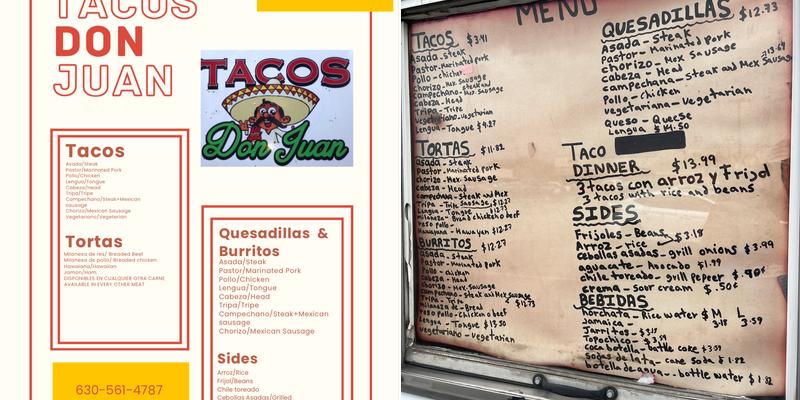 TACOS
DON
JUAN
TACOS
Don Juan
Tacos
Asada/Steak
Pastor/Marinated Pork
Pollo/Chicken
Lengua/Tongue
Cabeza/Head
Tripa/Tripe
Campechano/Steak+Mexican
sausage
Chorizo/Mexican Sausage
Vegetariano/Vegeterian
Tortas
Milanesa de res/ Breaded Beef
Milanesa de pollo/ Breaded chicken
Hawaiana/Hawaiian
Jamon/Ham
DISPONIBLES EN CUALQUIER OTRA CARNE
AVAILABLE IN EVERY OTHER MEAT
630-561-4787
Quesadillas &
Burritos
Asada/Steak
Pastor/Marinated Pork
Pollo/Chicken
Lengua/Tongue
Cabeza/Head
Tripa/Tripe
Campechano/Steak+Mexican
sausage
Chorizo/Mexican Sausage
Sides
Arroz/Rice
Frijol/Beans
Chile toreado
Cebollas Asadas/Grilled
MENU
TACOS $3.41
Asada-Steak
Pastor-Marinated pork
Pollo-chicken
chorizo-Mex Sausage
campechano-steak and Mex Sausage
cabeza-Head
Tripa-Tripe
vegetariano-vegetarian
Lengua-Tongue $4.27
TORTAS $11.82
Asada-steak
Pastor-Marinated pork
chorizo-Mex Sausage
cabeza-Head
campechano-steak and Mex
Tripa-Tripe Sausage $12.27
Lengua-Tongue
milaneza-Bread chicken o beef
Hawayana-Hawayan $12.27
BURRITOS $12.27
Asada-Steak
Pastor-Marinated Pork
Pollo-chicken
cabeza-Head
chorizo-Mex Sausage
campechano-Steak and Mex Sausage
Tripa-Tripe $12.73
milaneza de-Bread
Pollo-chicken o beef
Lengua-Tongue $13.50
vegetariano-Vegetarian
QUESADILLAS $12.73
Asada-Steak
Pastor-Marinated Pork
chorizo-Mex Sausage
cabeza-Head $13.64
campechana-steak and Mex Sausage
Pollo-chicken
vegetariana-Vegetarian
Queso-Queese
Lengua $14.50
Taco
DINNER $13.99
3 tacos con arroz y Frijol
3 tacos with rice and beans
SIDES
Frijoles-Beans $3.18
Arroz-rice
cebollas asadas-grill onions $3.99
aguacate-Avocado $1.99
chile toreado-grill pepper $.90¢
crema-sour cream $.50¢
BEBIDAS
horchata-Rice water $ M L
Jamaica- 3.18 3.59
Jarritos-$3.17
Topochico-$3.59
coca botella-bottle coke $3.59
sodas de lata-cane soda $1.82
botella de agua-bottle water $1.82